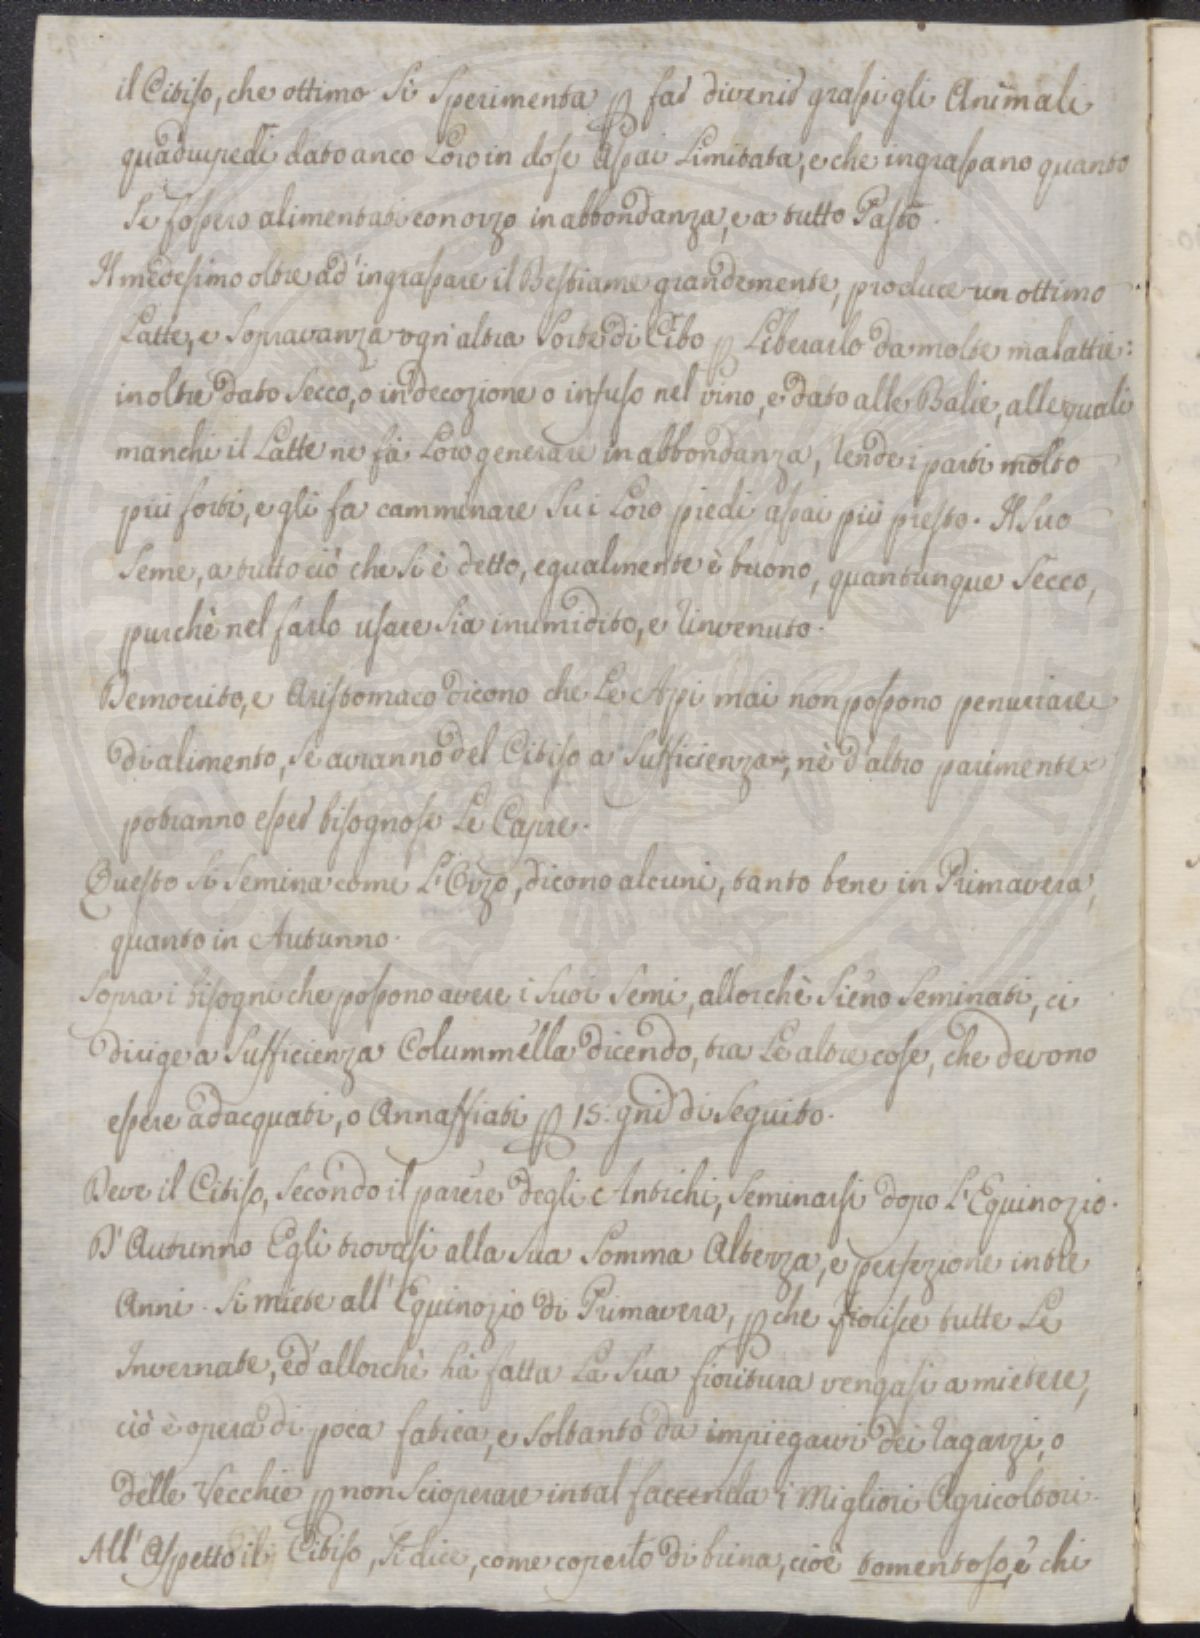 il Citiso, che ottimo si sperimenta p far divenir grassi gli Animali
quadrupedi dato anco Loro in dose assai Limitata, e che ingrassano quanto
se fossero alimentati con orzo in abbondanza, e a tutto Pasto.
Il medesimo oltre ad' ingrassare il Bestiame grandemente, produce un ottimo
Latte, e sopravanza ogn'altra sorte di Cibo p Liberarlo da molte malattie:
inoltre dato secco, o in decozione o infuso nel vino, e dato alle Balie, alle quali
manchi il Latte ne fà Loro generare in abbondanza, rende i parti molto
più forti, e gli fa camminare su i Loro piedi assai più presto. Il suo
seme, a tutto ciò che si è detto, egualmente è buono, quantunque secco,
purchè nel farlo usare sia inumidito, e rinvenuto.
Democrito, e Aristomaco dicono che Le Api mai non possono penuriare
di alimento, se avranno del Citiso a sufficienza, nè d'altro parimente
potranno esser bisognose Le Capre.
Questo si semina come L'Orzo, dicono alcuni, tanto bene in Primavera,
quanto in Autunno.
Sopra i bisogni che possono avere i suoi semi, allorchè sieno seminati, ci
dirige a sufficienza Colummella dicendo, tra Le altre cose, che devono
essere adacquati, o Annaffiati p 15. gni di seguito.
Deve il Citiso, secondo il parere degli Antichi, seminarsi dopo L'Equinozio.
D'Autunno Egli trovasi alla sua somma Altezza, e perfezione in tre
Anni. Si miete all' Equinozio di Primavera, p che fiorisce tutte Le
Invernate, ed' allorchè hà fatta La sua fioritura vengasi a mietere,
ciò è opera di poca fatica, e soltanto da impiegarvi dei ragazzi, o
delle Vecchie p non scioperare in tal faccenda i Migliori Agricoltori.
All' Aspetto il Citiso, si dice, come coperto di brina, cioè tomentoso, e chi